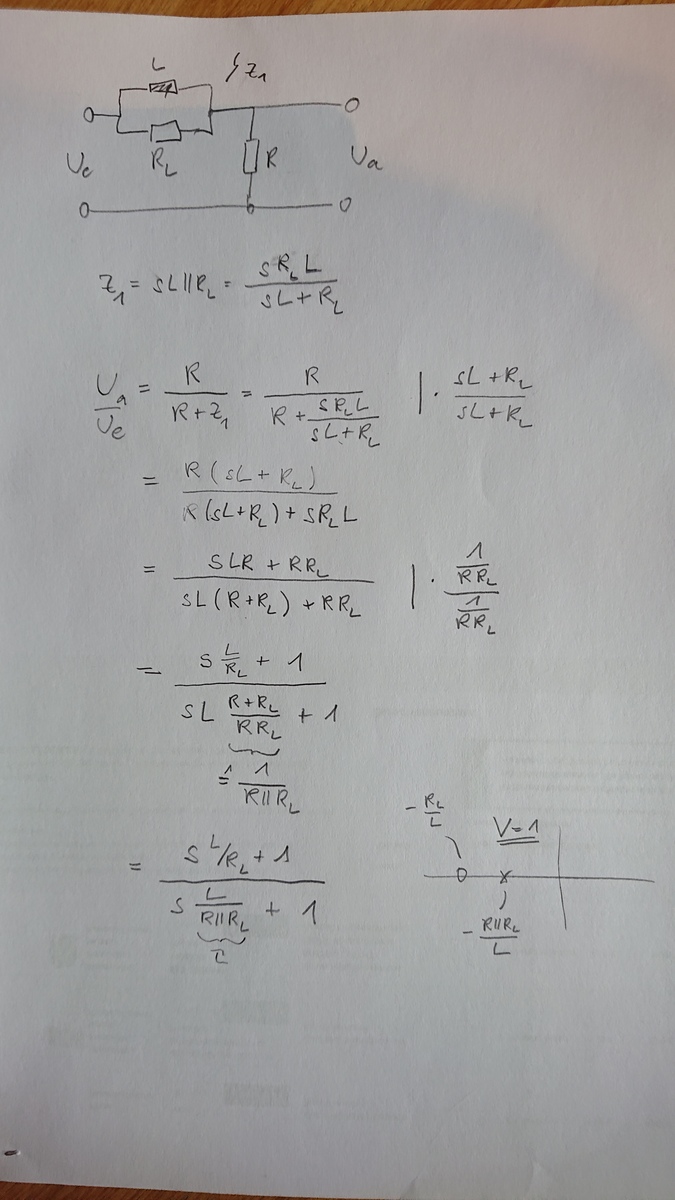 L
Z₁
Uₑ
R_L
R
Uₐ
Z₁ = sL||R_L = \frac{sR_L L}{sL + R_L}
\frac{Uₐ}{Uₑ} = \frac{R}{R + Z₁} = \frac{R}{R + \frac{sR_L L}{sL + R_L}} | · \frac{sL + R_L}{sL + R_L}
= \frac{R(sL + R_L)}{R(sL + R_L) + sR_L L}
= \frac{sLR + RR_L}{sL(R + R_L) + RR_L} | · \frac{\frac{1}{RR_L}}{\frac{1}{RR_L}}
= \frac{s\frac{L}{R_L} + 1}{sL\frac{R + R_L}{RR_L} + 1}
≙ \frac{1}{R||R_L}
= \frac{s L/R_L + 1}{s\frac{L}{R||R_L} + 1}
τ
-\frac{R_L}{L}
V=1
o
x
-\frac{R||R_L}{L}